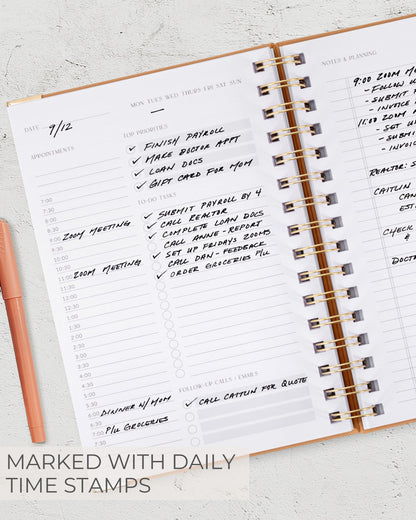 MON TUES WED THURS FRI SAT SUN
DATE 9/12
APPOINTMENTS
TOP PRIORITIES
FINISH PAYROLL
MAKE DOCTOR APPT
LOAN DOCS
GIFT CARD FOR MOM
TO-DO TASKS
SUBMIT PAYROLL BY 4
CALL REACTOR
COMPLETE LOAN DOCS
CALL ANNE - REPORT
SET UP FRIDAY'S ZOOMS
CALL DAN - FEEDBACK
ORDER GROCERIES P/U
7:00
7:30
8:00
8:30
9:00 ZOOM MEETING
9:30
10:00
10:30
11:00 ZOOM MEETING
11:30
12:00
12:30
1:00
1:30
2:00
2:30
3:00
3:30
4:00
4:30
5:00
5:30
6:00 DINNER W/ MOM
6:30
7:00 P/U GROCERIES
7:30
FOLLOW-UP CALLS / EMAILS
CALL CAITLIN FOR QUOTE
NOTES & PLANNING
9:00 ZOOM
- FOLLOW
- SUBMIT
- INVOICE
11:00 ZOOM
- SET UP
- SUBM
- INVOI
REACTOR:
CAITLIN
CAN
EST
CHECK
&
DOCT
MARKED WITH DAILY
TIME STAMPS